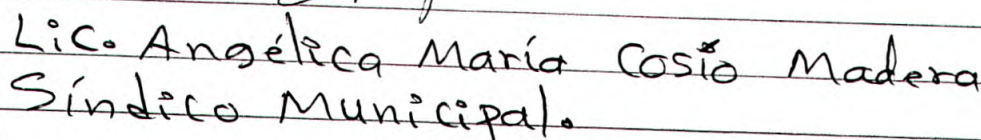 Lic. Angélica María Cosío Madera
Síndico Municipal.